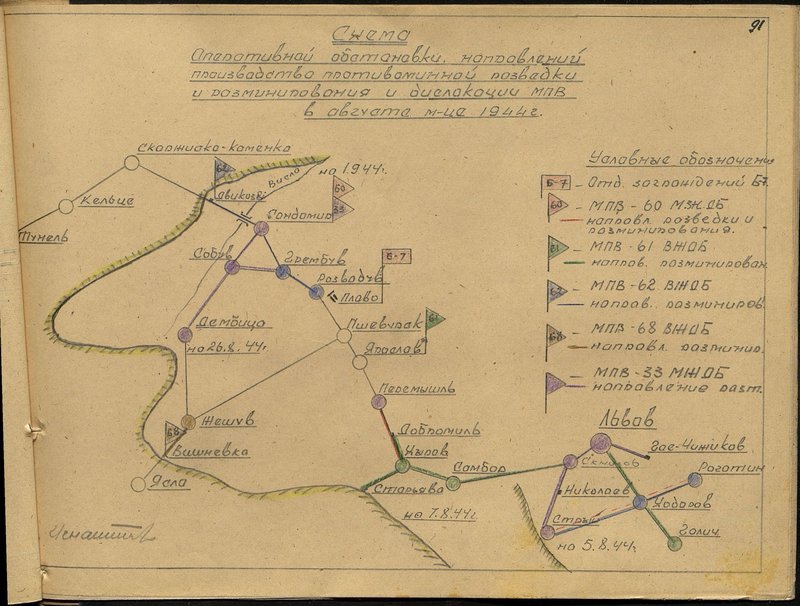 91
Схема
Оперативной обстановки, направлений
производства противоминной разведки
и разминирования и дислокации МПВ
в августе м-це 1944г.
Скаржиско-каменко
Кельце
Тунель
62
Висла
на 1.944г.
Двикозы
60
33
Сандомир
Собув
Грембув
Б-7
Розвадув
Плаво
61
Пшевурск
Дембица
на 26.8.44г.
Ярослав
Перемышль
Жешув
68
Вишневка
Ясла
Добромиль
Хыров
Самбор
Старьява
на 7.8.44г
Львов
Скнилов
Гае-Чижиков
Рогатин
Николаев
Ходоров
Стрый
Голич
на 5.8.44г.
Условные обозначения
Б-7 – Отд. заграждений Б7.
60 – МПВ – 60 МЖДБ
направл. разведки и
разминирования.
61 – МПВ – 61 ВЖДБ
направ. разминирован.
62 – МПВ – 62 ВЖДБ
направ. разминиров.
68 – МПВ – 68 ВЖДБ
направл. разминир.
– МПВ – 33 МЖДБ
направление разм.